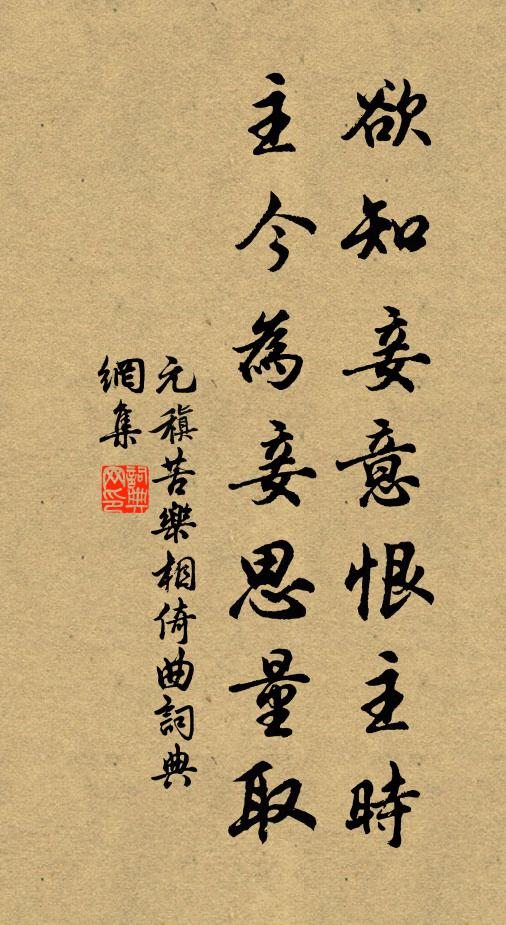 欲知妾意恨主時
主今為妾思量取
元稹苦樂相倚曲詞典
網集
詞典網印